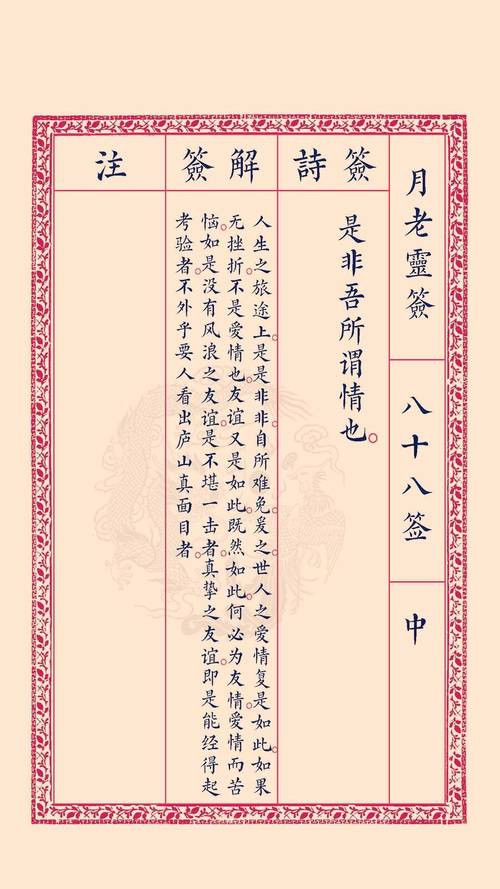 月老靈簽
八十八签
中
簽詩
是非吾所谓情也。
解簽
人生之旅途上。是是非非自所难免。爰之世人之爱情复是如此。如果
无挫折不是爱情也。友谊又是如此。既然如此。何必为友情爱情而苦
恼。如是没有风浪之友谊。是不堪一击者。真挚之友谊。即是能经得起
考验者。不外乎要人看出庐山真面目者。
注